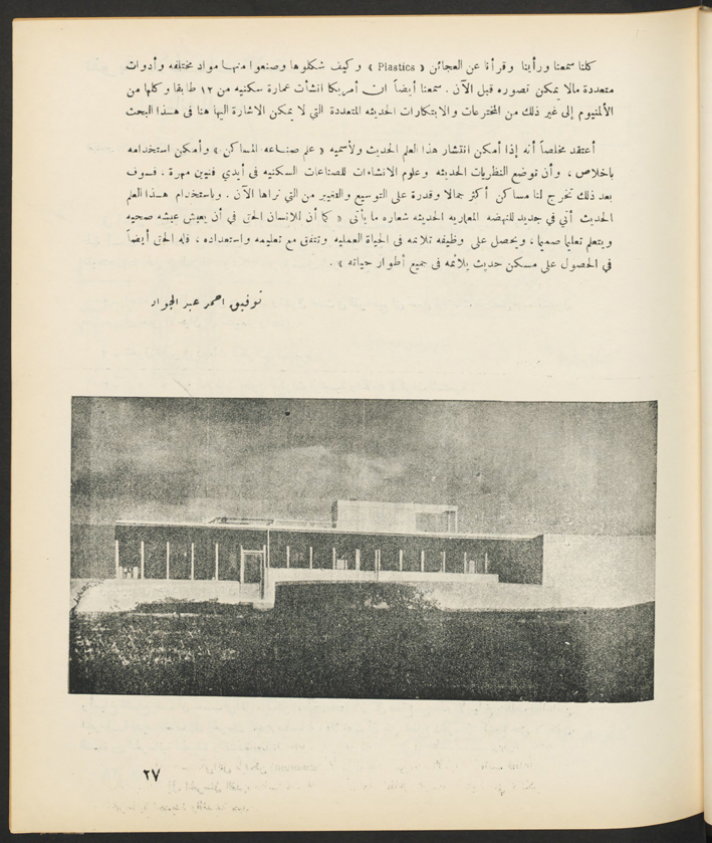 كلنا سمعنا ورأينا وقرأنا عن العجائن « Plastics » وكيف شكلوها وصنعوا منها مواد مختلفه وأدوات
متعددة مالا يمكن تصوره قبل الآن . سمعنا أيضاً ان أمريكا انشأت عمارة سكنيه من ١٢ طابقا وكلها من
الألمنيوم إلى غير ذلك من المخترعات والابتكارات الحديثه المتعددة التي لا يمكن الاشارة اليها هنا فى هذا البحث
أعتقد مخلصاً أنه إذا أمكن انتشار هذا العلم الحديث ولأسميه « علم صناعه المساكن » وأمكن استخدامه
باخلاص ، وأن توضع النظريات الحديثه وعلوم الانشاءات للصناعات السكنيه فى أيدي فنيين مهرة . فسوف
بعد ذلك تخرج لنا مساكن أكثر جمالا وقدرة على التوسيع والتغيير من التي نراها الآن . وباستخدام هذا العلم
الحديث أتي في جديد للنهضه المعماريه الحديثه شعاره ما يأتى « كما أن للانسان الحق في أن يعيش عيشه صحيه
ويتعلم تعليما صحيحا ، ويحصل على وظيفه تلائمه فى الحياة العمليه وتتفق مع تعليمه واستعداده ، فله الحق أيضاً
في الحصول على مسكن حديث يلائمه فى جميع أطوار حياته » .
توفيق احمد عبد الجواد
٢٧